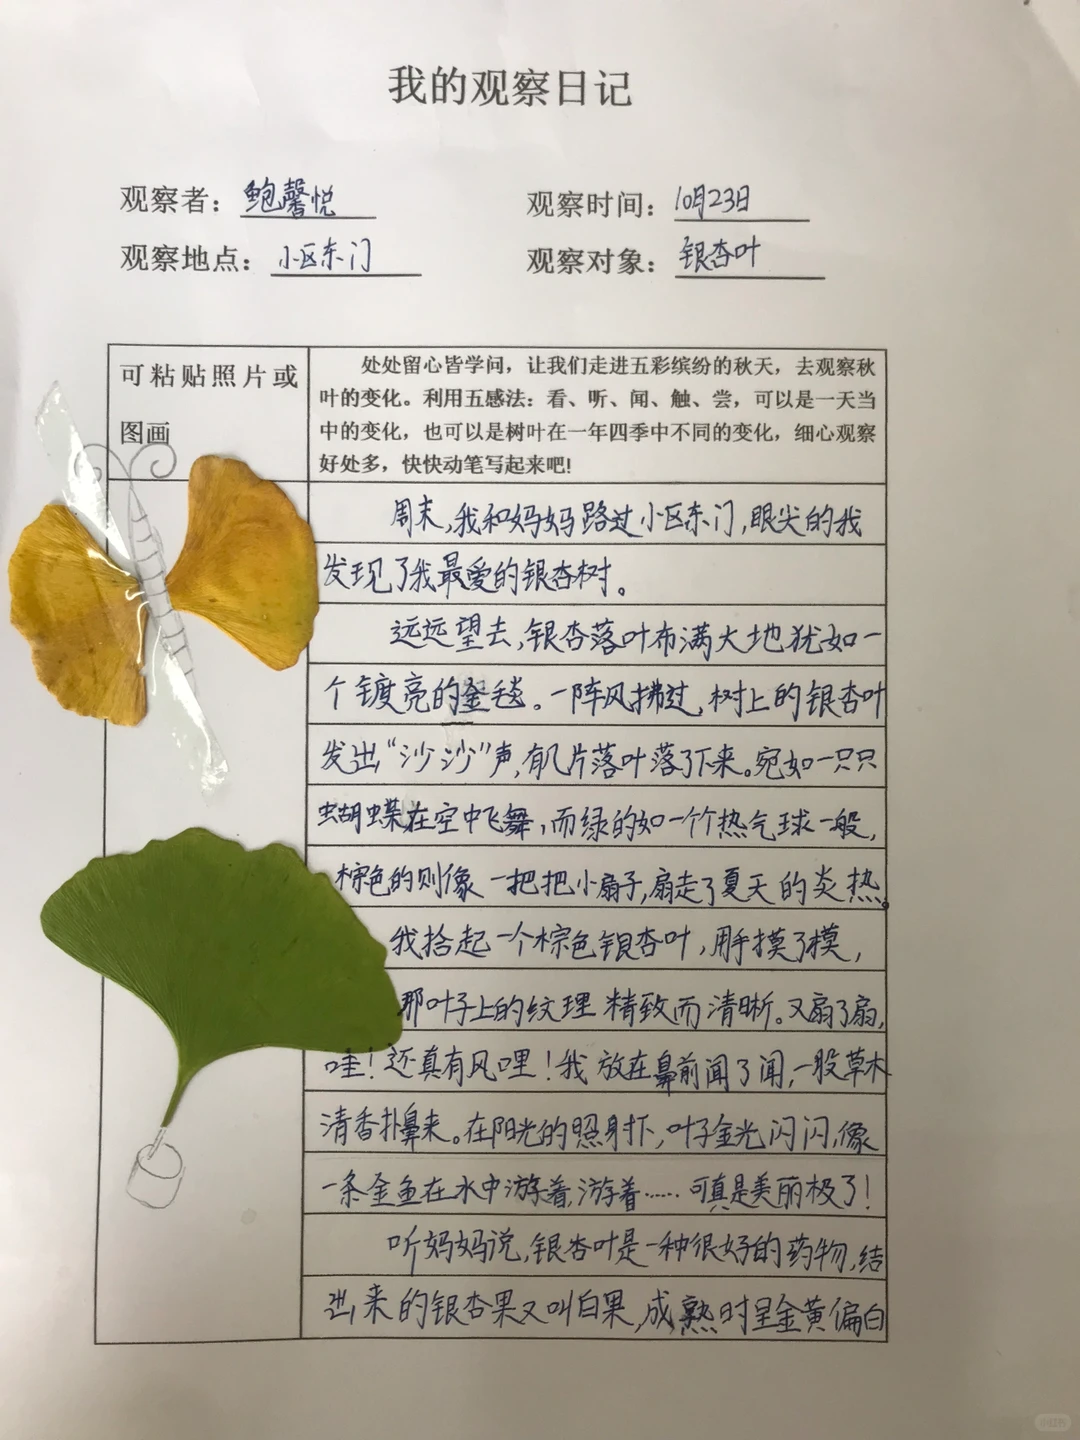 我的观察日记
观察者：鲍馨悦
观察时间：10月23日
观察地点：小区东门
观察对象：银杏叶
可粘贴照片或
图画
处处留心皆学问，让我们走进五彩缤纷的秋天，去观察秋
叶的变化。利用五感法：看、听、闻、触、尝，可以是一天当
中的变化，也可以是树叶在一年四季中不同的变化，细心观察
好处多，快快动笔写起来吧!
周末，我和妈妈路过小区东门，眼尖的我
发现了我最爱的银杏树。
远远望去，银杏落叶布满大地犹如一
个镀亮的金毯。一阵风拂过，树上的银杏叶
发出“沙沙”声，有几片落叶落了下来。宛如一只只
蝴蝶在空中飞舞，而绿的如一个个热气球一般，
棕色的则像一把把小扇子，扇走了夏天的炎热。
我拾起一个棕色银杏叶，用手摸了模，
那叶子上的纹理精致而清晰。又扇了扇，
哇！还真有风哩！我放在鼻前闻了闻，一股草木
清香扑鼻来。在阳光的照身扑下，叶子金光闪闪，像
一条金鱼在水中游着，游着……可真是美丽极了！
听妈妈说，银杏叶是一种很好的药物，结
出来的银杏果又叫白果，成熟时呈金黄偏白